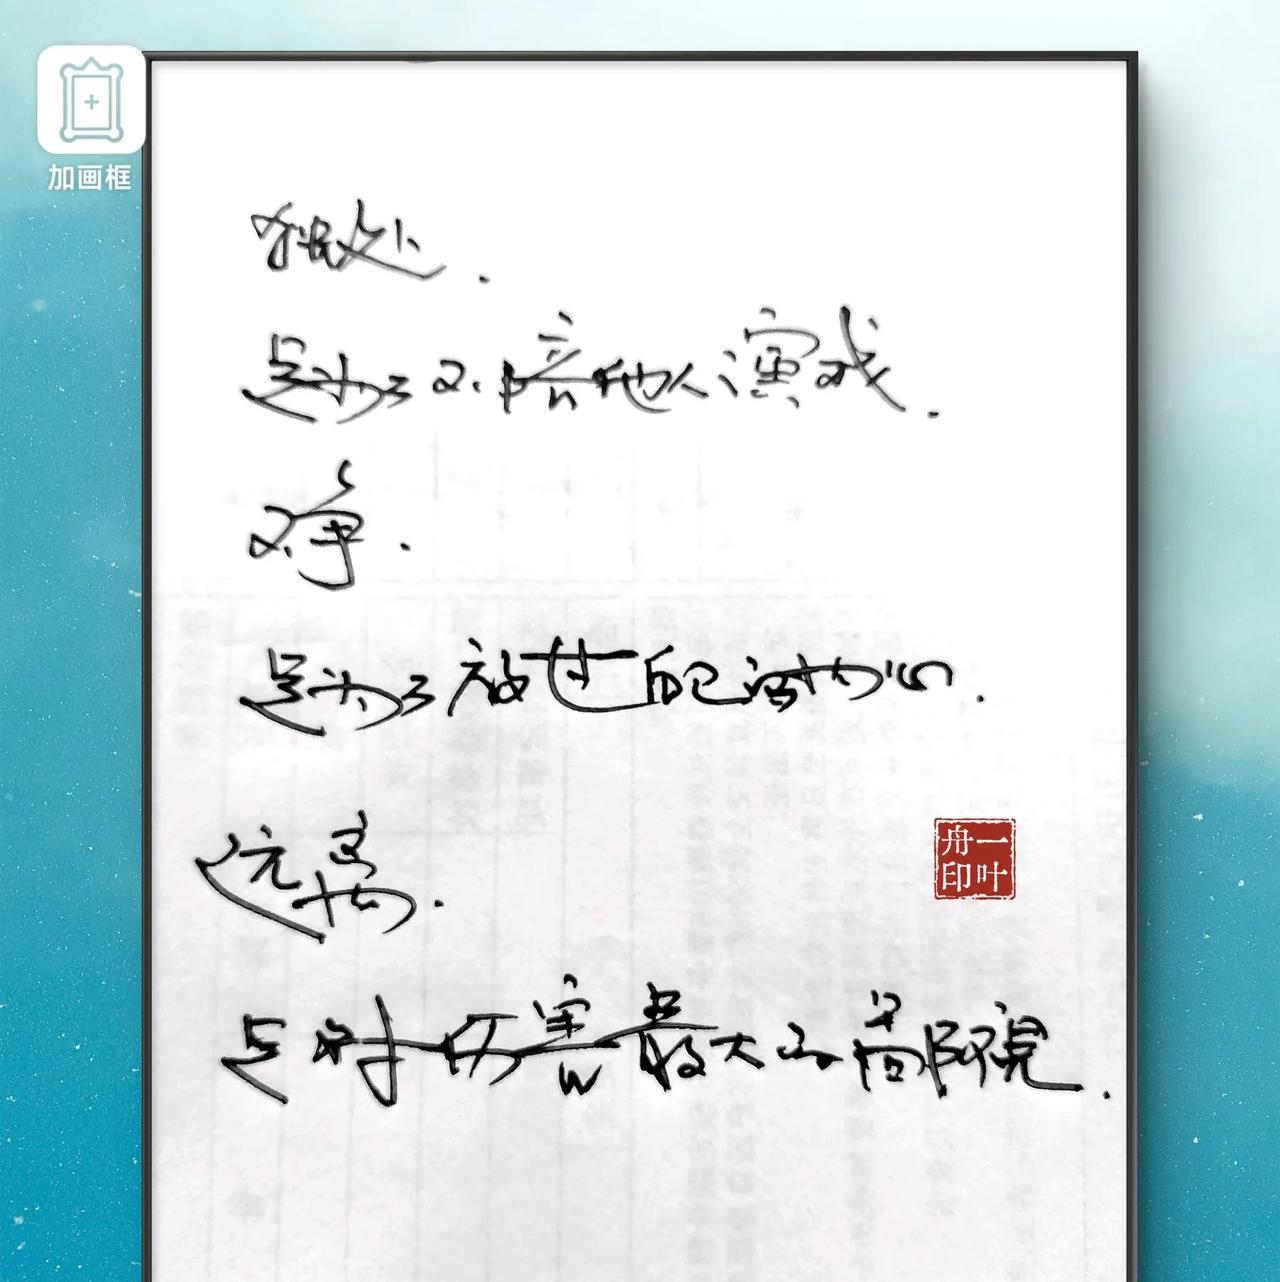 加画框
独处.
是为了不陪他人演戏.
不争.
是为了放过自己的内心.
远离.
是对伤害最大的
一叶
舟印